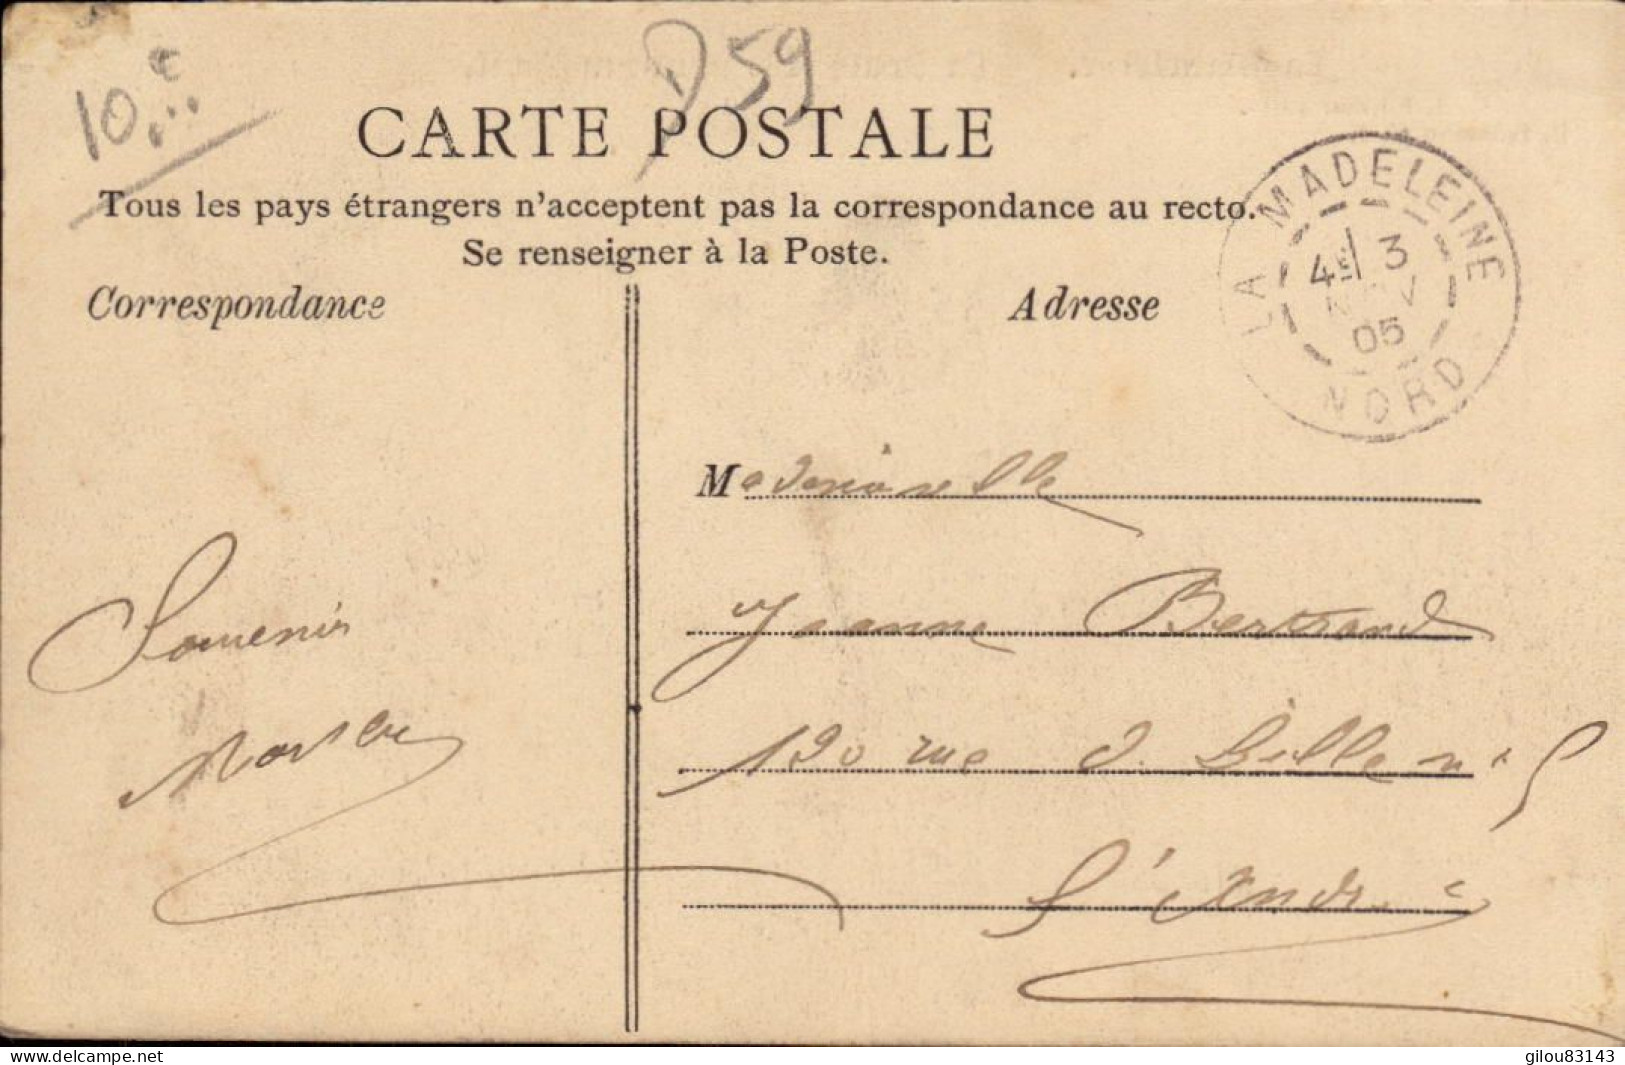 10.
D59
CARTE POSTALE
Tous les pays étrangers n'acceptent pas la correspondance au recto.
Se renseigner à la Poste.
Correspondance
Adresse
LA MADELEINE
4E 3
NOV
05
NORD
Mademoiselle
Jeanne Bertrand
120 rue d. Lille
St André
Souvenir
delcampe.net
gilou83143